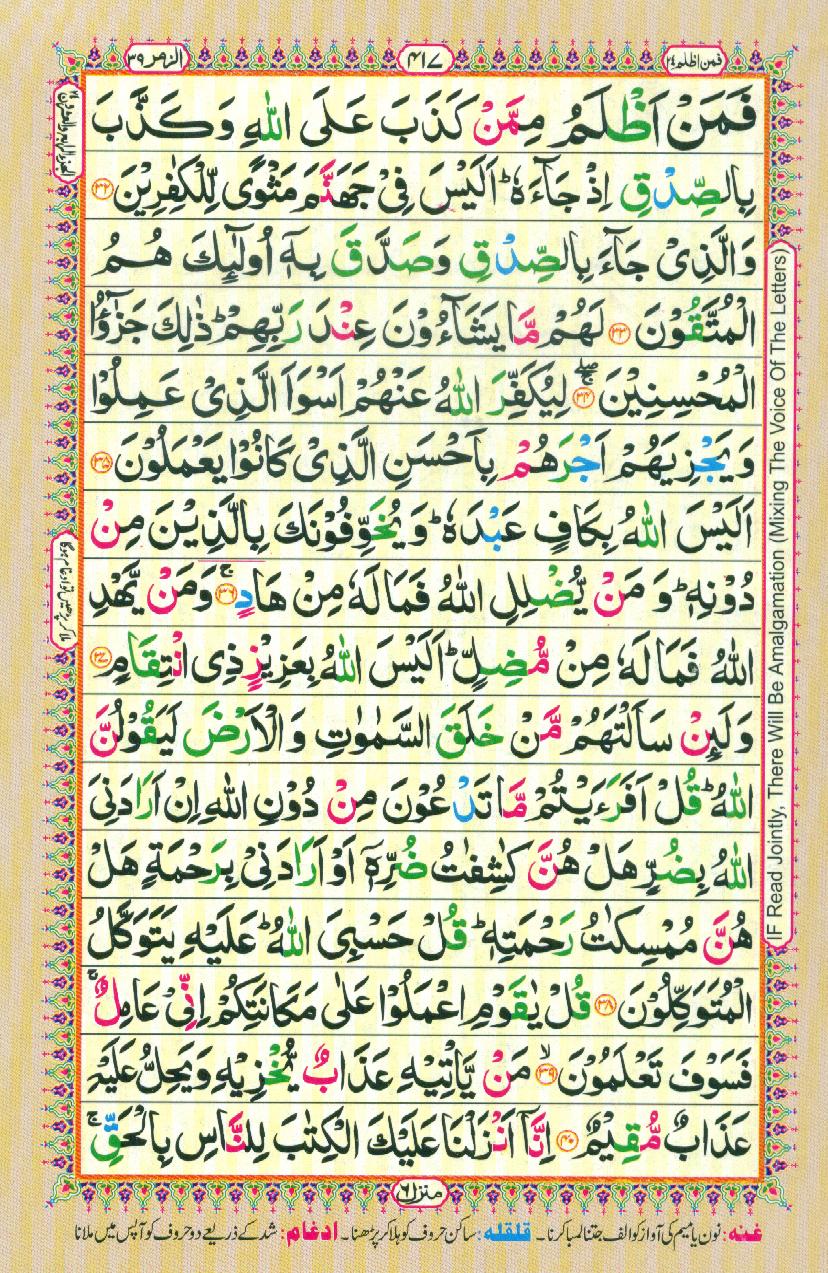 فمن اظلم ۲۴ ۴۱۷ الزمر ۳۹
فَمَنْ اَظْلَمُ مِمَّنْ كَذَبَ عَلَى اللّٰهِ وَكَذَّبَ
بِالصِّدْقِ اِذْ جَآءَهٗ ؕ اَلَيْسَ فِيْ جَهَنَّمَ مَثْوًى لِّلْكٰفِرِيْنَ ۝۳۲
وَالَّذِيْ جَآءَ بِالصِّدْقِ وَصَدَّقَ بِهٖۤ اُولٰٓئِكَ هُمُ
الْمُتَّقُوْنَ ۝۳۳ لَهُمْ مَّا يَشَآءُوْنَ عِنْدَ رَبِّهِمْ ؕ ذٰلِكَ جَزٰٓؤُا
الْمُحْسِنِيْنَ ۝۳۴ۚۖ لِيُكَفِّرَ اللّٰهُ عَنْهُمْ اَسْوَاَ الَّذِيْ عَمِلُوْا
وَيَجْزِيَهُمْ اَجْرَهُمْ بِاَحْسَنِ الَّذِيْ كَانُوْا يَعْمَلُوْنَ ۝۳۵
اَلَيْسَ اللّٰهُ بِكَافٍ عَبْدَهٗ ؕ وَيُخَوِّفُوْنَكَ بِالَّذِيْنَ مِنْ
دُوْنِهٖ ؕ وَمَنْ يُّضْلِلِ اللّٰهُ فَمَا لَهٗ مِنْ هَادٍ ۝۳۶ۚ وَمَنْ يَّهْدِ
اللّٰهُ فَمَا لَهٗ مِنْ مُّضِلٍّ ؕ اَلَيْسَ اللّٰهُ بِعَزِيْزٍ ذِي انْتِقَامٍ ۝۳۷
وَلَئِنْ سَاَلْتَهُمْ مَّنْ خَلَقَ السَّمٰوٰتِ وَالْاَرْضَ لَيَقُوْلُنَّ
اللّٰهُ ؕ قُلْ اَفَرَءَيْتُمْ مَّا تَدْعُوْنَ مِنْ دُوْنِ اللّٰهِ اِنْ اَرَادَنِيَ
اللّٰهُ بِضُرٍّ هَلْ هُنَّ كٰشِفٰتُ ضُرِّهٖۤ اَوْ اَرَادَنِيْ بِرَحْمَةٍ هَلْ
هُنَّ مُمْسِكٰتُ رَحْمَتِهٖ ؕ قُلْ حَسْبِيَ اللّٰهُ ؕ عَلَيْهِ يَتَوَكَّلُ
الْمُتَوَكِّلُوْنَ ۝۳۸ قُلْ يٰقَوْمِ اعْمَلُوْا عَلٰى مَكَانَتِكُمْ اِنِّيْ عَامِلٌ ۚ
فَسَوْفَ تَعْلَمُوْنَ ۝۳۹ۙ مَنْ يَّاْتِيْهِ عَذَابٌ يُّخْزِيْهِ وَيَحِلُّ عَلَيْهِ
عَذَابٌ مُّقِيْمٌ ۝۴۰ اِنَّاۤ اَنْزَلْنَا عَلَيْكَ الْكِتٰبَ لِلنَّاسِ بِالْحَقِّ ۚ
منزل ۶
غنه: نون یا میم کی آواز کو الف جتنا لمبا کرنا۔ قلقله: ساکن حروف کو ہلا کر پڑھنا۔ ادغام: شد کے ذریعے دو حروف کو آپس میں ملانا
IF Read Jointly, There Will Be Amalgamation (Mixing The Voice Of The Letters)